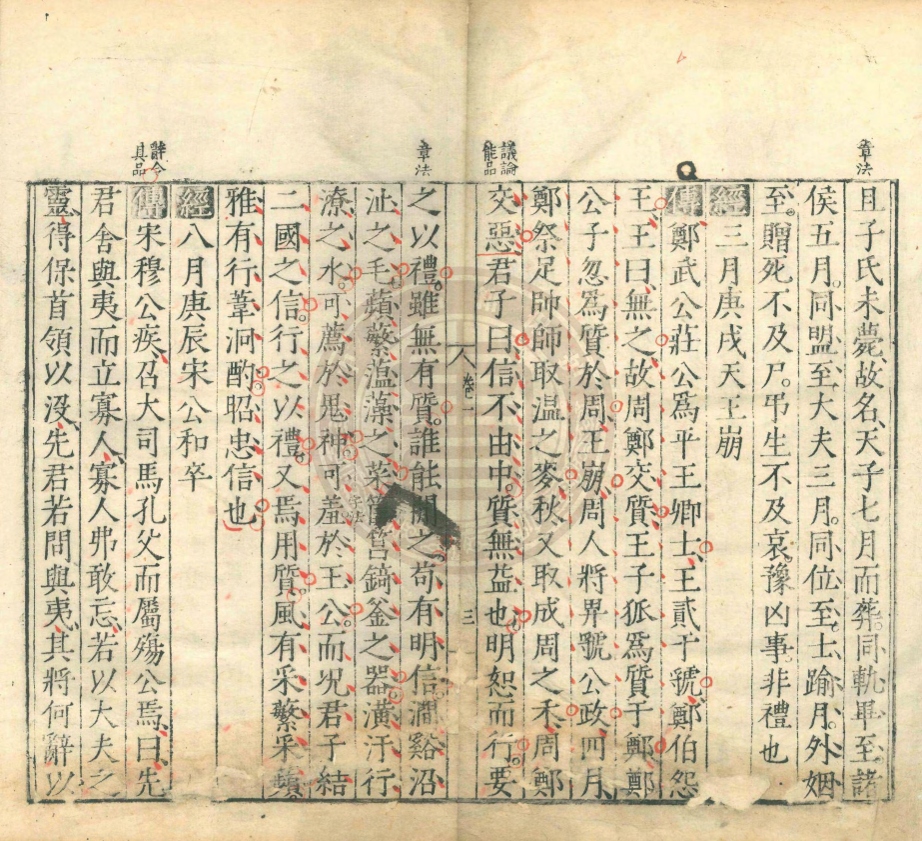 章法
且子氏未薨故名天子七月而葬同軌畢至諸
侯五月同盟至大夫三月同位至士踰月外姻
至贈死不及尸弔生不及哀豫凶事非禮也
經三月庚戌天王崩
傳鄭武公莊公爲平王卿士王貳于虢鄭伯怨
王王曰無之故周鄭交質王子狐爲質于鄭鄭
公子忽爲質於周王崩周人將畀虢公政四月
鄭祭足帥師取温之麥秋又取成周之禾周鄭
議論
能品
交惡君子曰信不由中質無益也明恕而行要
卷一 三
章法
之以禮雖無有質誰能間之苟有明信澗谿沼
沚之毛蘋蘩温藻之菜筐筥錡釜之器潢汙行
潦之水可薦於鬼神可羞於王公而况君子結
二國之信行之以禮又焉用質風有采蘩采蘋
雅有行葦泂酌昭忠信也
經八月庚辰宋公和卒
辭令
具品
傳宋穆公疾召大司馬孔父而屬殤公焉曰先
君舍與夷而立寡人寡人弗敢忘若以大夫之
靈得保首領以没先君若問與夷其將何辭以